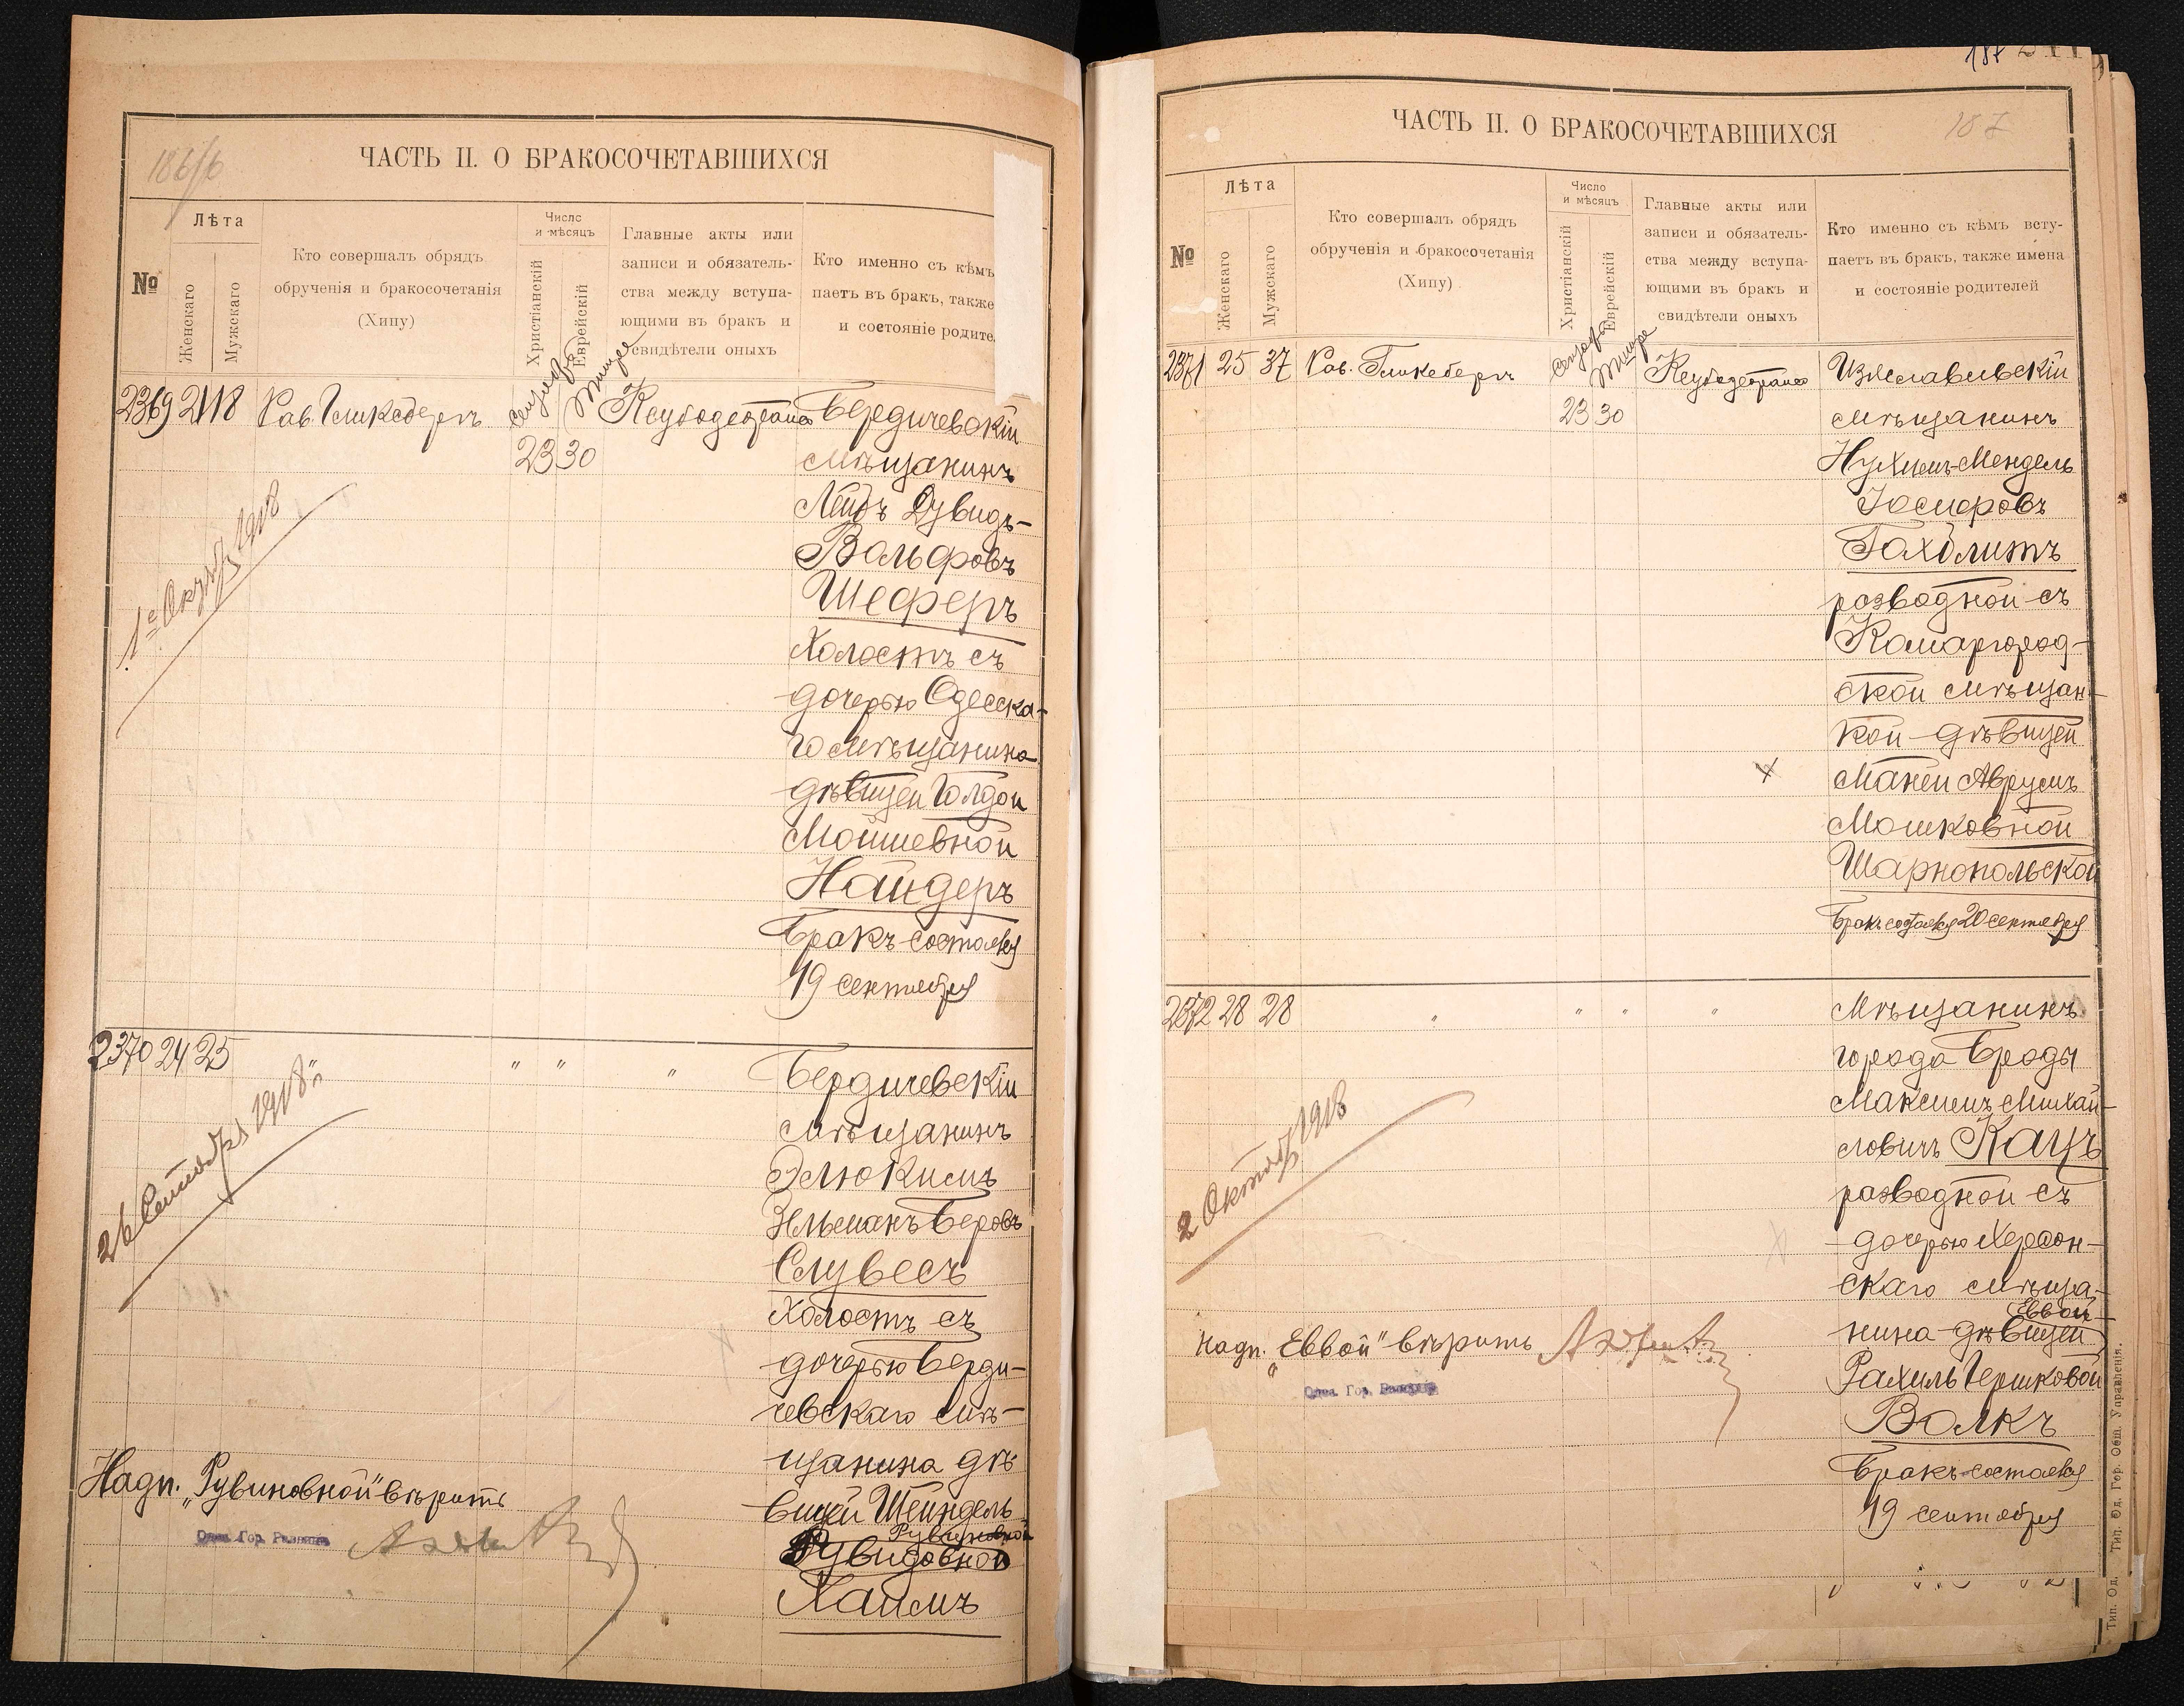 186/6
ЧАСТЬ II. О БРАКОСОЧЕТАВШИХСЯ
№
Лѣта
Женскаго
Мужскаго
Кто совершалъ обрядъ
обрученія и бракосочетанія
(Хипу)
Число
и мѣсяцъ
Христіанскій
Еврейскій
Главные акты или
записи и обязатель-
ства между вступа-
ющими въ бракъ и
свидѣтели оныхъ
Кто именно съ кѣмъ
паетъ въ бракъ, также
и состояніе родите
2369 21 18 Рав. Гликсбергъ
23 30
Бердичевскій
мѣщанинъ
Лейбъ Дувидъ-
Вольфовъ
Шеферъ
холостъ съ
дочерью Одесска-
го мѣщанина
дѣвицей Голдой
Мошневной
Найдеръ
Бракъ состоялся
19 сентября
1го Октяб 1918
2370 24 25 " " "
Бердичевскій
мѣщанинъ
Элюкимъ
Зельманъ Беровъ
Слувесъ
холостъ съ
дочерью Берди-
чевскаго мѣ-
щанина дѣ-
вицей Шейндель
Рувиновной
Рувидовной
Хаимъ
26 Сентября 1918
Надп. "Рувиновной" вѣрить
Одес. Гор. Раввинъ
187
ЧАСТЬ II. О БРАКОСОЧЕТАВШИХСЯ
187
№
Лѣта
Женскаго
Мужскаго
Кто совершалъ обрядъ
обрученія и бракосочетанія
(Хипу)
Число
и мѣсяцъ
Христіанскій
Еврейскій
Главные акты или
записи и обязатель-
ства между вступа-
ющими въ бракъ и
свидѣтели оныхъ
Кто именно съ кѣмъ всту-
паетъ въ бракъ, также имена
и состояніе родителей
2371 25 37 Рав. Гликсбергъ
23 30
Изяславльскій
мѣщанинъ
Нухимъ-Мендель
Іосифовъ
Гахдлитъ
разводной съ
Комаргород-
ской мѣщан-
кой-дѣвицей
Маней Аврумъ
Мошковной
Шарнопольской
Бракъ состоялся 20 сентября
2372 28 28 " " " "
Мѣщанинъ
города Броды
Максимъ Михай-
ловичъ Кацъ
разводной съ
дочерью Херсон-
скаго мѣща-
Еввой
нина-дѣвицей
Рахиль Гершковой
Волкъ
Бракъ состоялся
19 сентября
2 Октяб 1918
Надп. "Еввой" вѣрить
Одес. Гор. Раввинъ
Тип. Од. Тип. Од. Гор. Общ. Управленія.